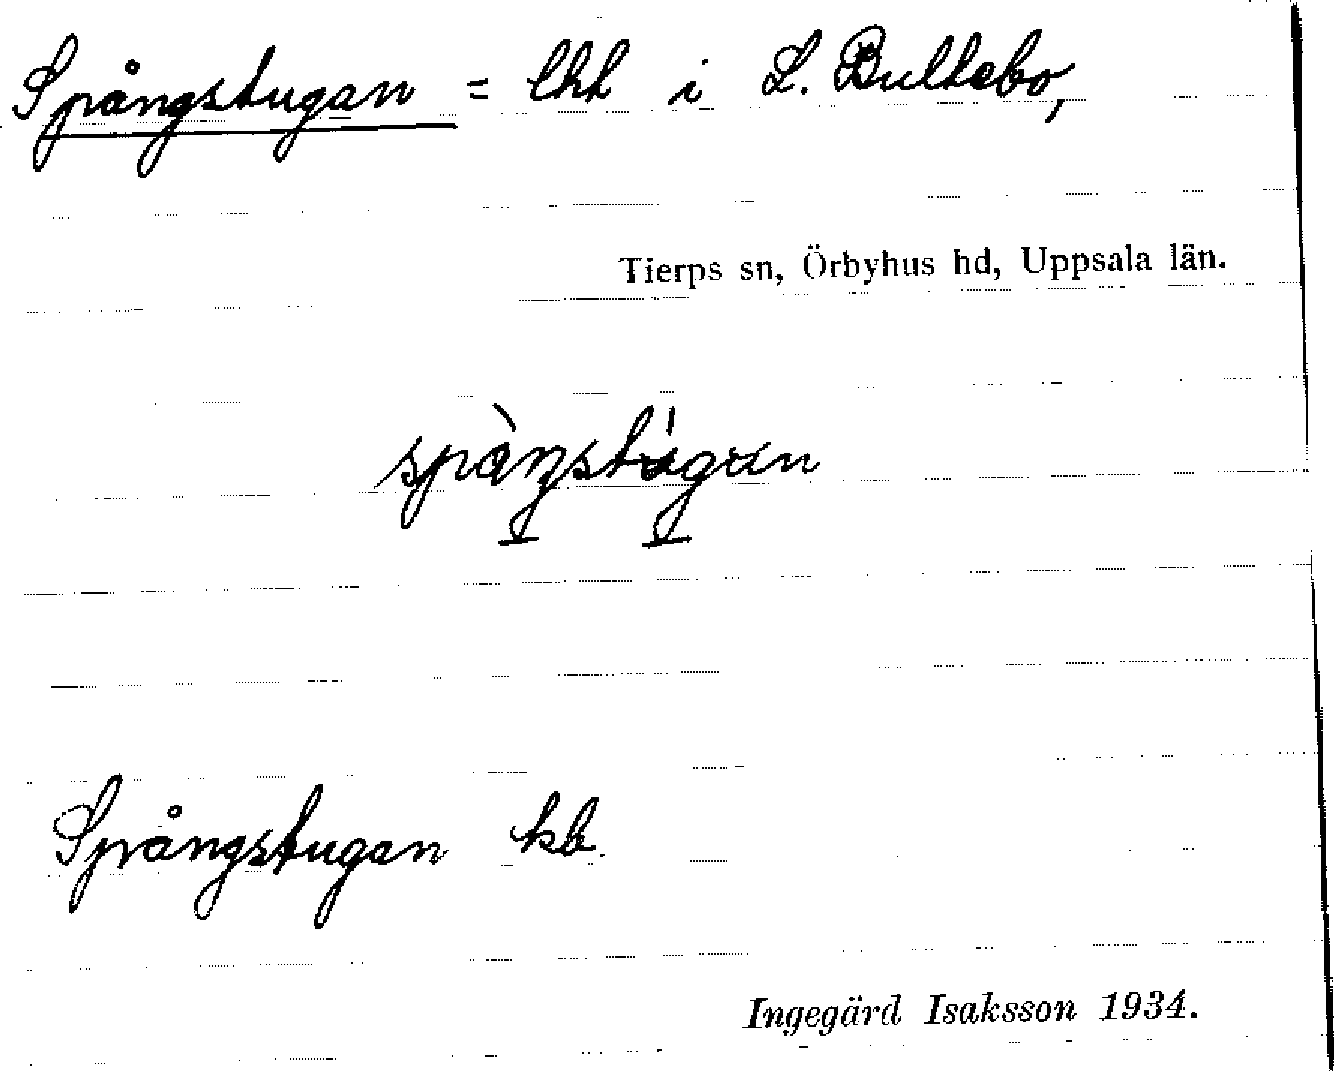 Spångstugan = lht i L. Bultebo,
Tierps sn, Örbyhus hd, Uppsala län.
Spångstugan kb.
Ingegärd Isaksson 1934.